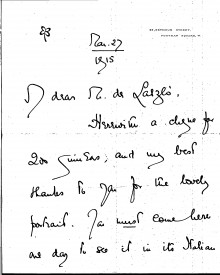 Mar. 27
1915
My dear M. de László,
Herewith a cheque for
200 guineas, and my best
thanks to you for the lovely
portrait. You must come here
one day to see it in its Italian